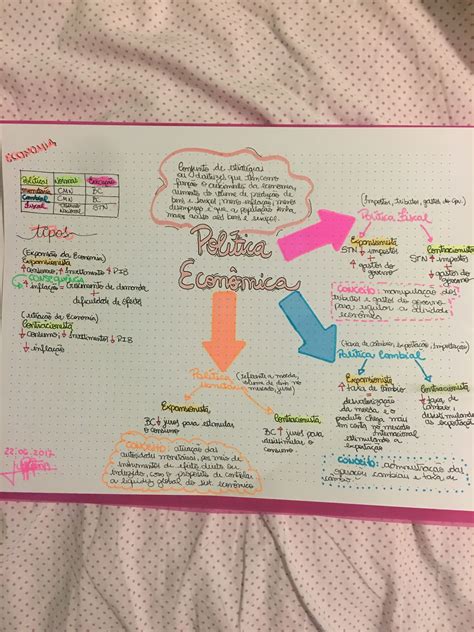 ECONOMIA
Políticas Normas Execução
monetária CMN BC
Cambial CMN BC
fiscal STN
tipos
(Expansão da Economia)
Expansionista
↑ consumo; ↑ Investimento ↑ PIB
CONSEQUÊNCIA
↑ inflação = Crescimento da demanda
dificuldade de oferta
(Retração da Economia)
Contracionista
↓ consumo; ↓ Investimentos ↓ PIB
↓ inflação
22.06.2017
Conjunto de estratégias
ou diretrizes que tem como
função o crescimento da economia,
aumento do volume de produção de
bens e serviços, menos inflação, menos
desemprego e que a população tenha
mais acesso aos bens e serviços.
Política
Econômica
(Impostos, tributos, gastos do Gov.)
Política Fiscal
Expansionista
STN ↓ impostos
↑ gastos do
governo
Contracionista
STN ↑ impostos
↓ gastos do
governo
CONCEITO: manipulação dos
tributos e gastos do governo
para regular a atividade
econômica
(taxa de câmbio, exportação, importação)
Política Cambial
Expansionista
↑ taxa de câmbio =
desvalorização
da moeda e o
produto chega mais
em conta no mercado
internacional
estimulando a
exportação
Contracionista
↓ taxa de
câmbio =
desestimulando
as
exportação
CONCEITO: administração das
cambiais e taxa de
câmbio
Política
monetária
(referente a moeda,
volume de din. no
mercado, juros)
Expansionista
BC ↓ juros para estimular
o consumo
Contracionista
BC ↑ juros para
desestimular o
consumo
CONCEITO: atuação das
autoridades monetárias, por meio de
instrumentos de efeito direto ou
induzido, com o propósito de controlar
a liquidez global do sist. econômico